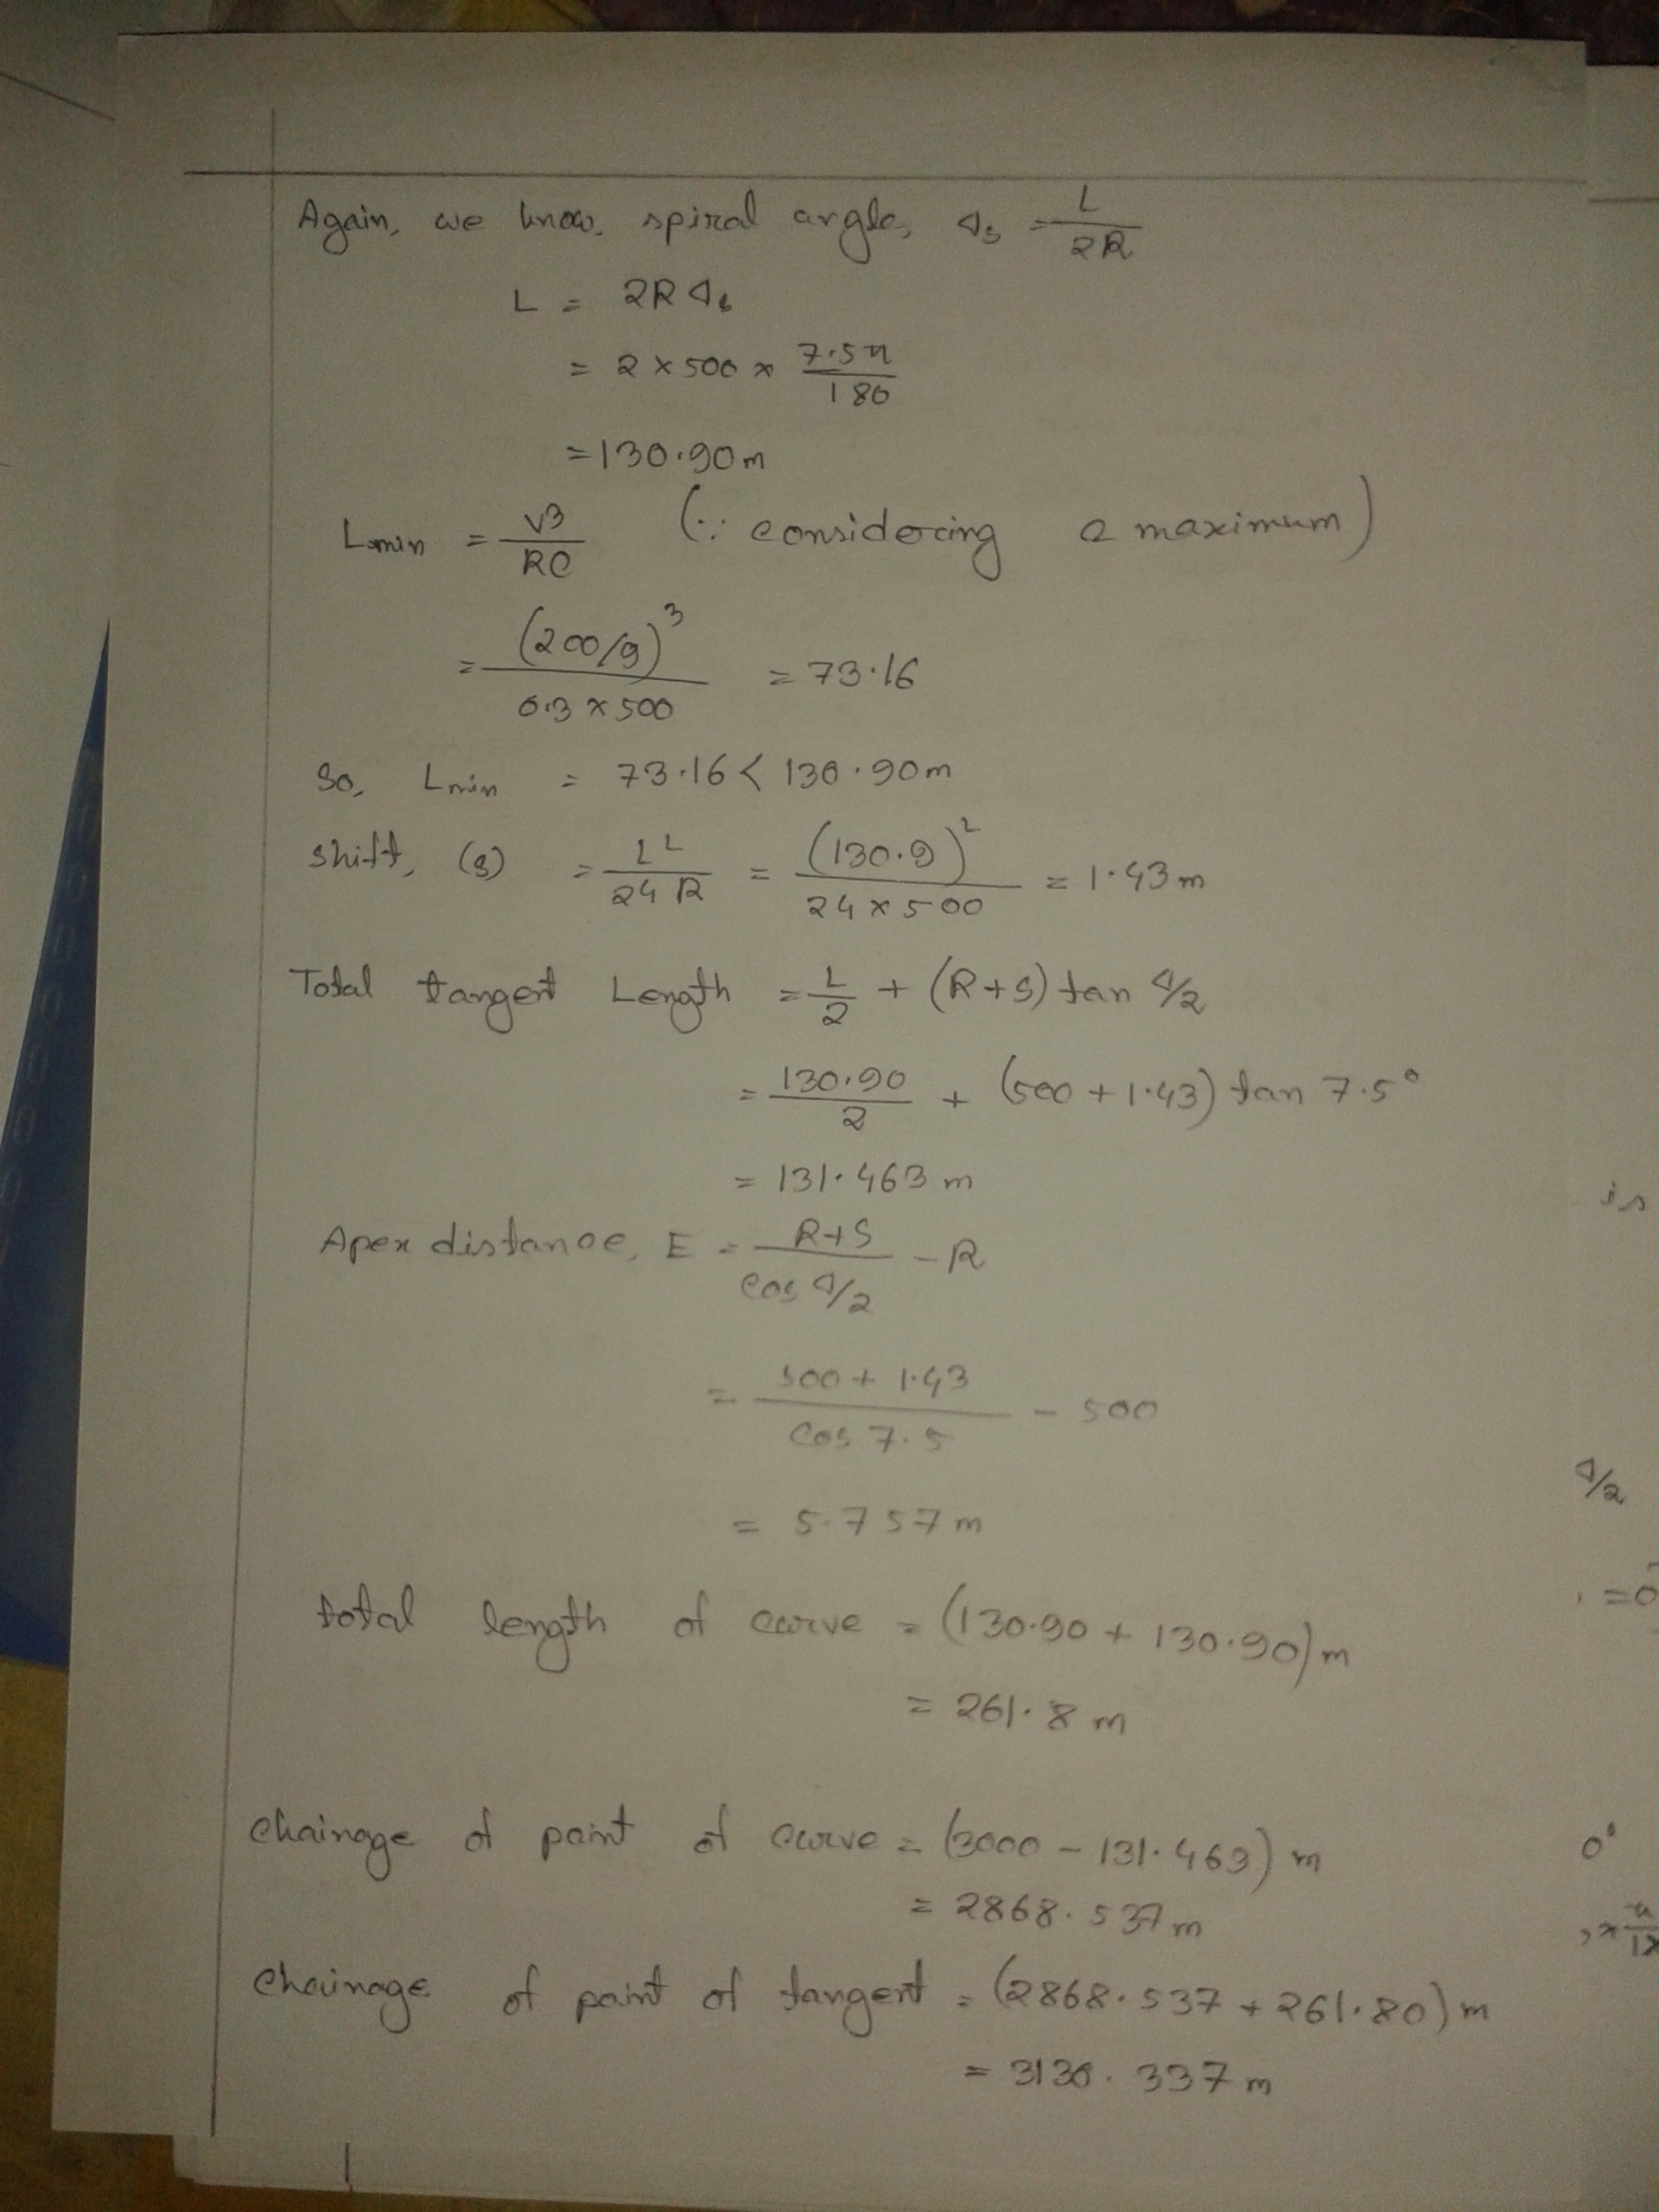 Again, we know, spiral angle, Δs = L/2R
L = 2RΔs
= 2 × 500 × 7.5π/180
= 130.90m
Lmin = V3/RC (∵ considering c maximum)
= (200/9)^3/0.3 × 500 = 73.16
So, Lmin = 73.16 < 130.90m
shift, (s) = L^2/24R = (130.9)^2/24 × 500 = 1.43m
Total tangent Length = L/2 + (R+S) tan Δ/2
= 130.90/2 + (500 + 1.43) tan 7.5°
= 131.463 m
is
Apex distance, E = R+S/cos Δ/2 - R
= 500 + 1.43/cos 7.5 - 500
Δ/2
= 5.757m
total length of curve = (130.90 + 130.90)m
= 261.8 m
chainage of point of curve = (3000 - 131.463) m
= 2868.537m
chainage of point of tangent = (2868.537 + 261.80)m
= 3130.337m